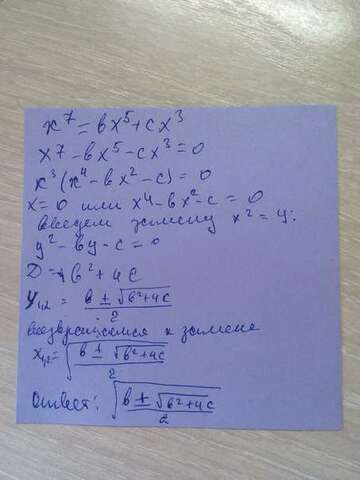 x⁷ = вx⁵ + cx³
x⁷ - вx⁵ - cx³ = 0
x³(x⁴ - вx² - c) = 0
x = 0 или x⁴ - вx² - c = 0
введем замену x² = y:
y² - вy - c = 0
D = в² + 4c
y₁,₂ = (в ± √(в² + 4c))/2
возвращаемся к замене
x₁,₂ = √((в ± √(в² + 4c))/2)
ответ: √((в ± √(в² + 4c))/2)